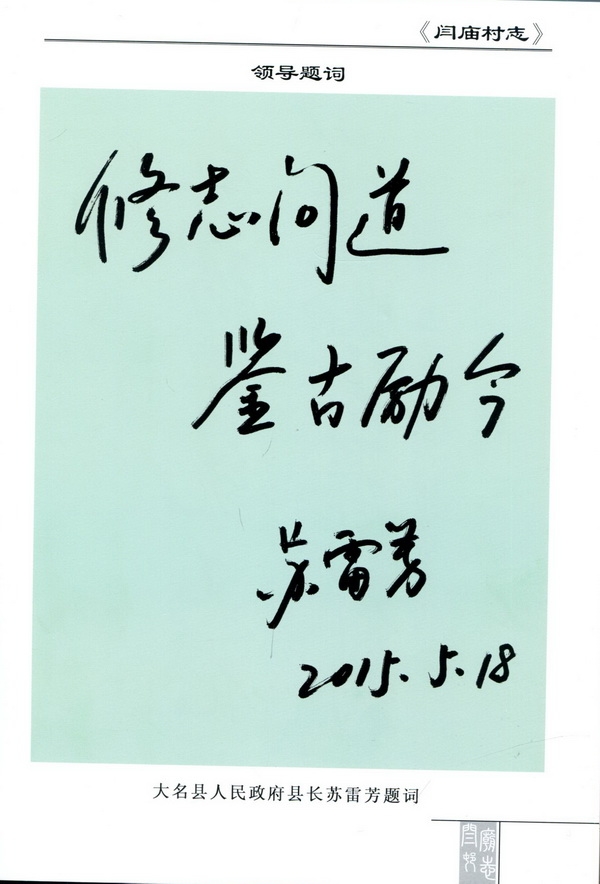 《闫庙村志》
领导题词
修志问道
鉴古励今
苏雷芳
2015.5.18
大名县人民政府县长苏雷芳题词
闫庙村志